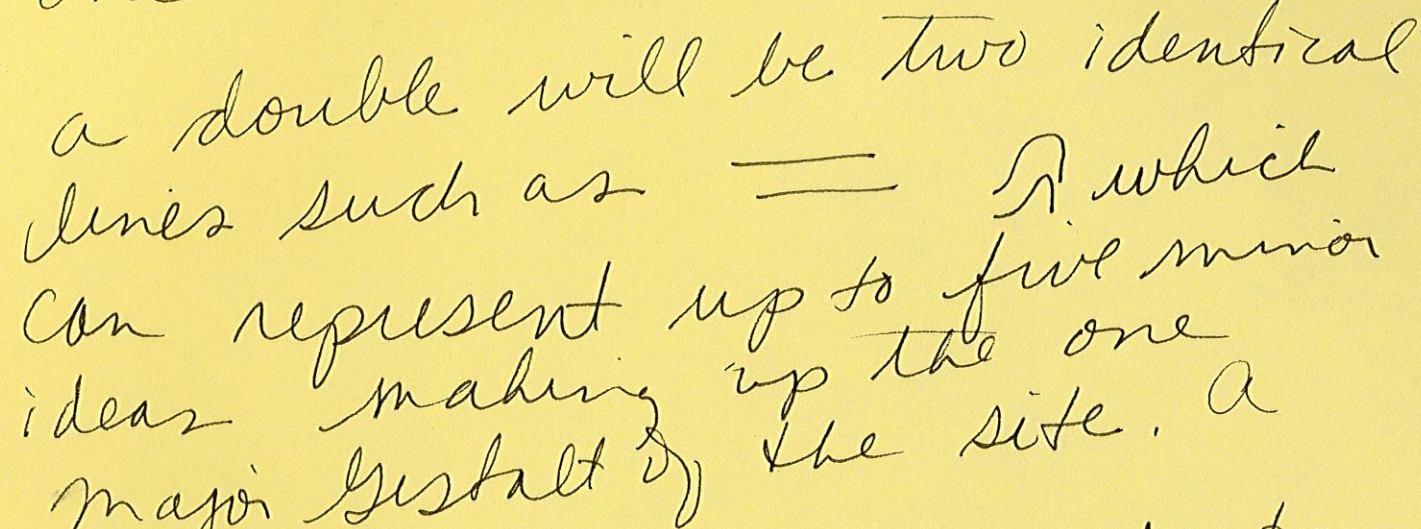 a double will be two identical
lines such as = which
can represent up to five minor
ideas making up the one
major Gestalt of the site. A